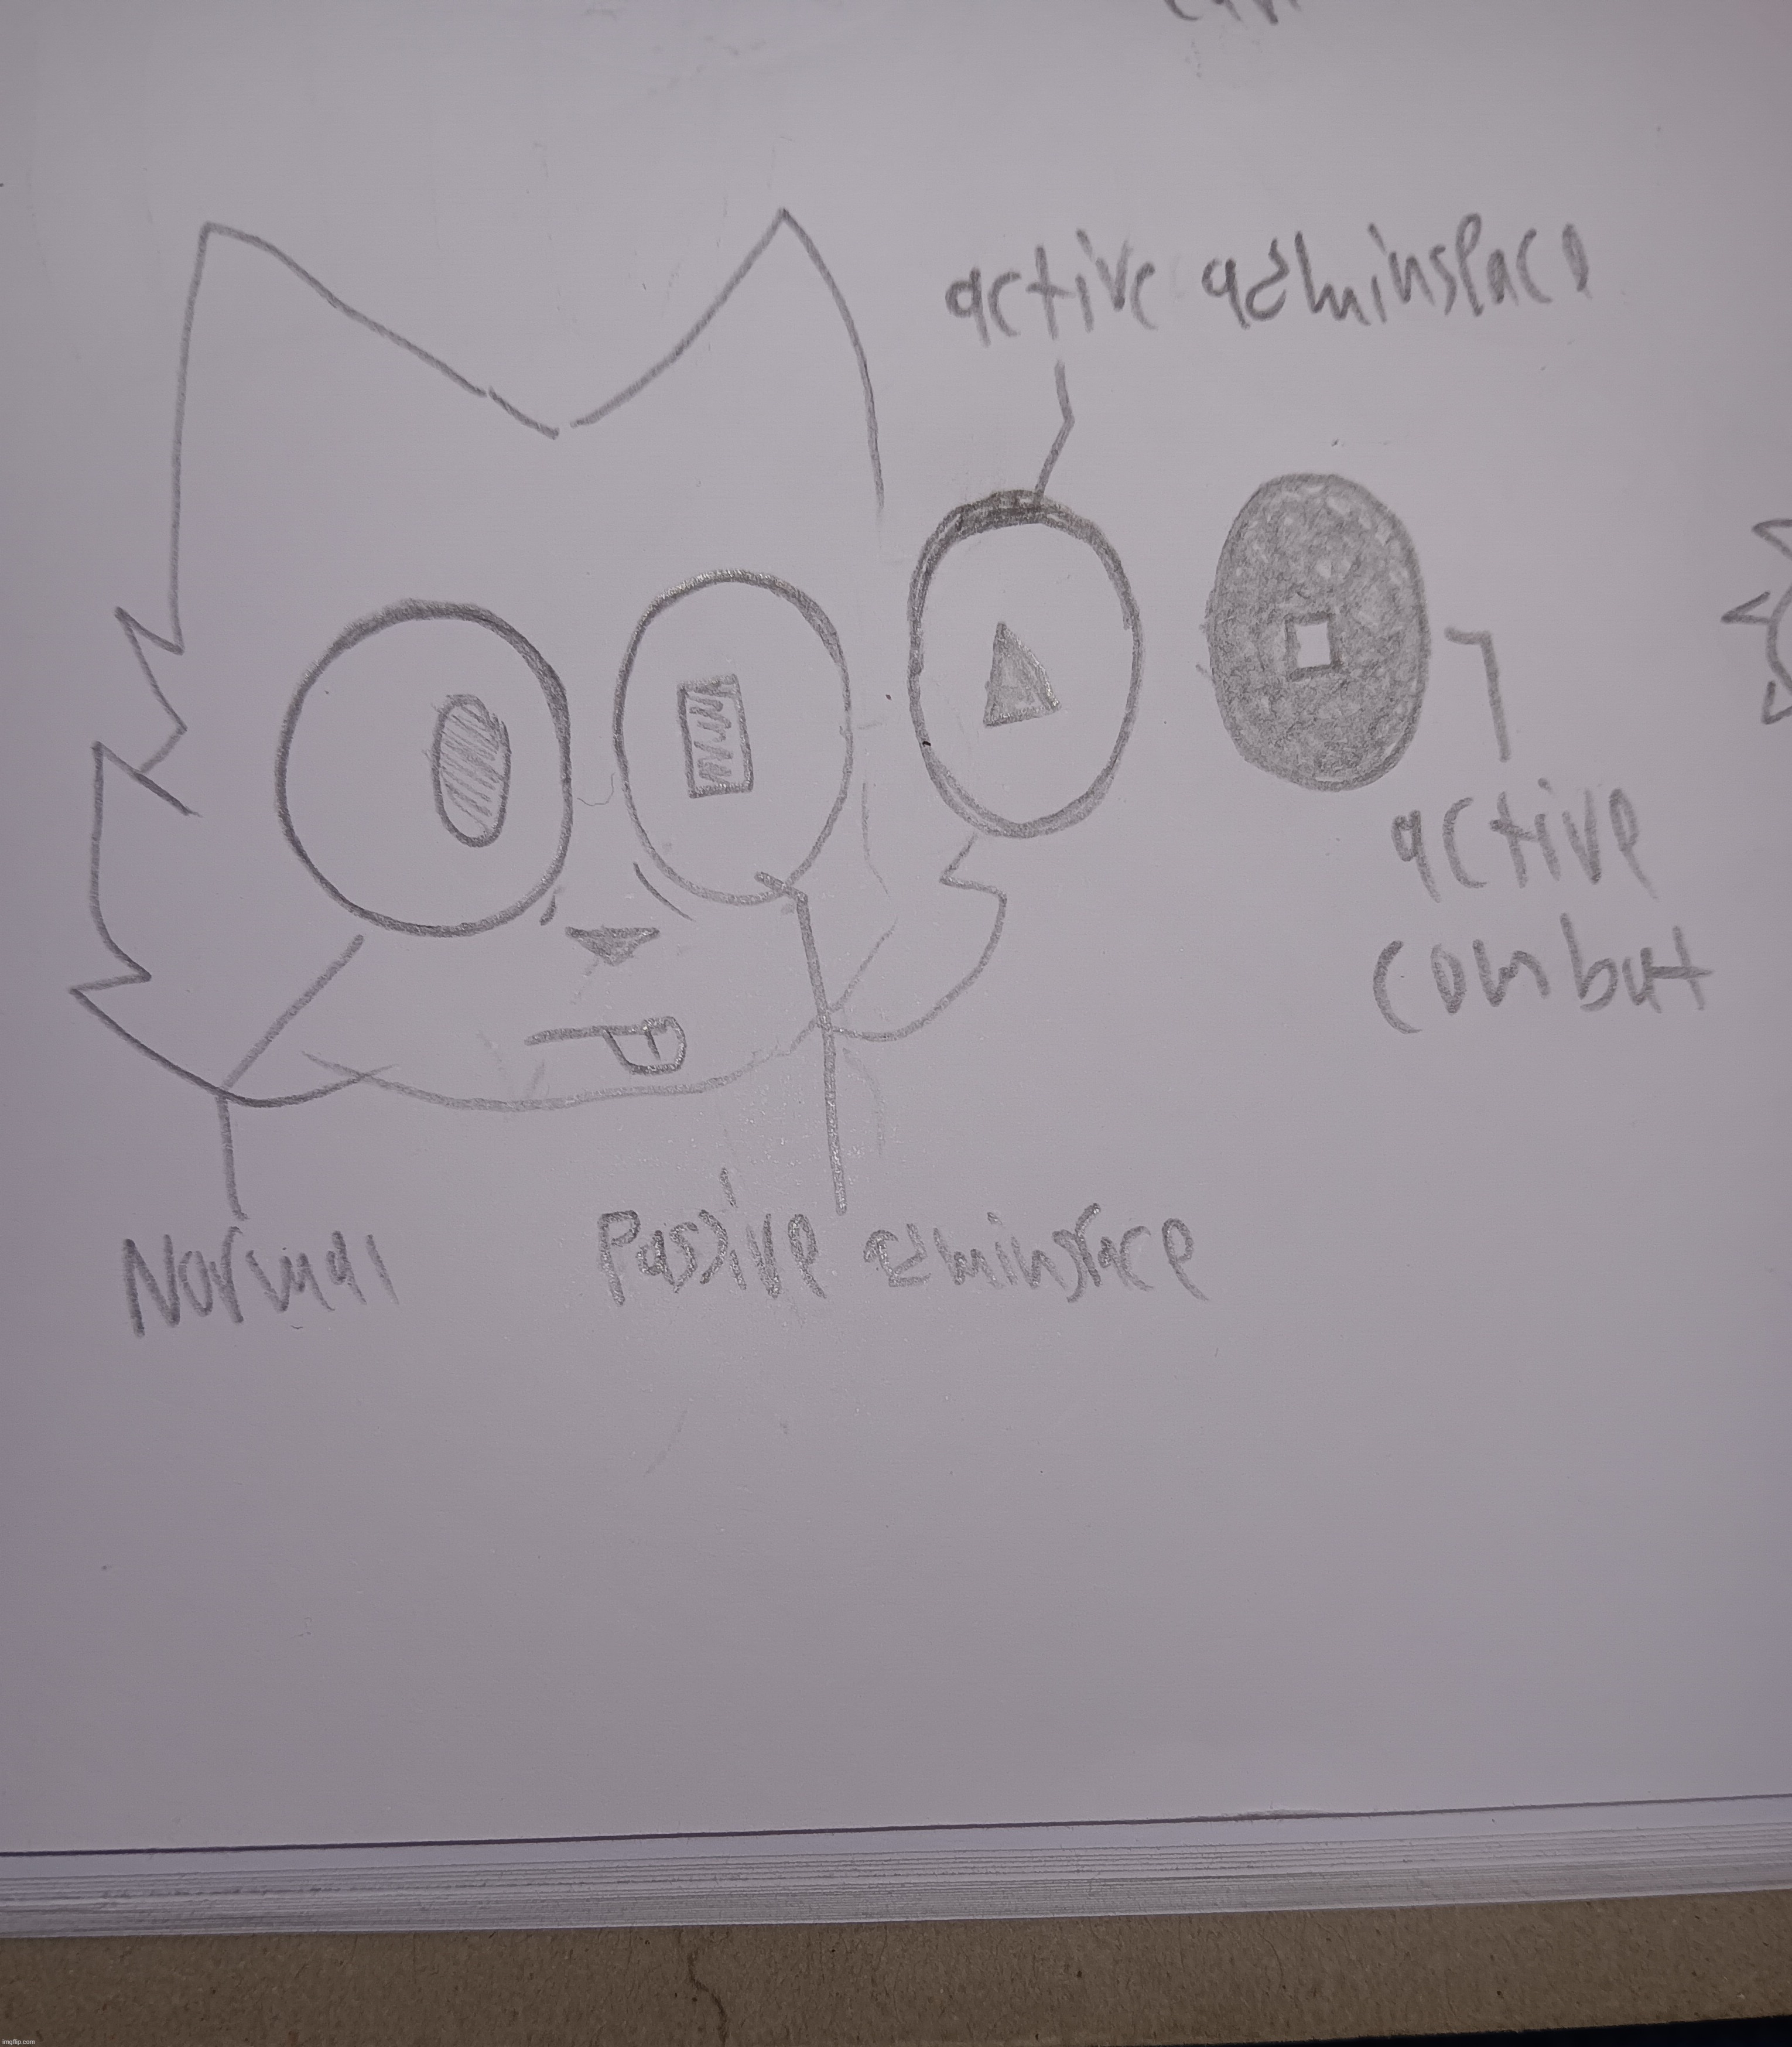 active adminspace
active
combat
Normal
Passive adminspace
imgflip.com